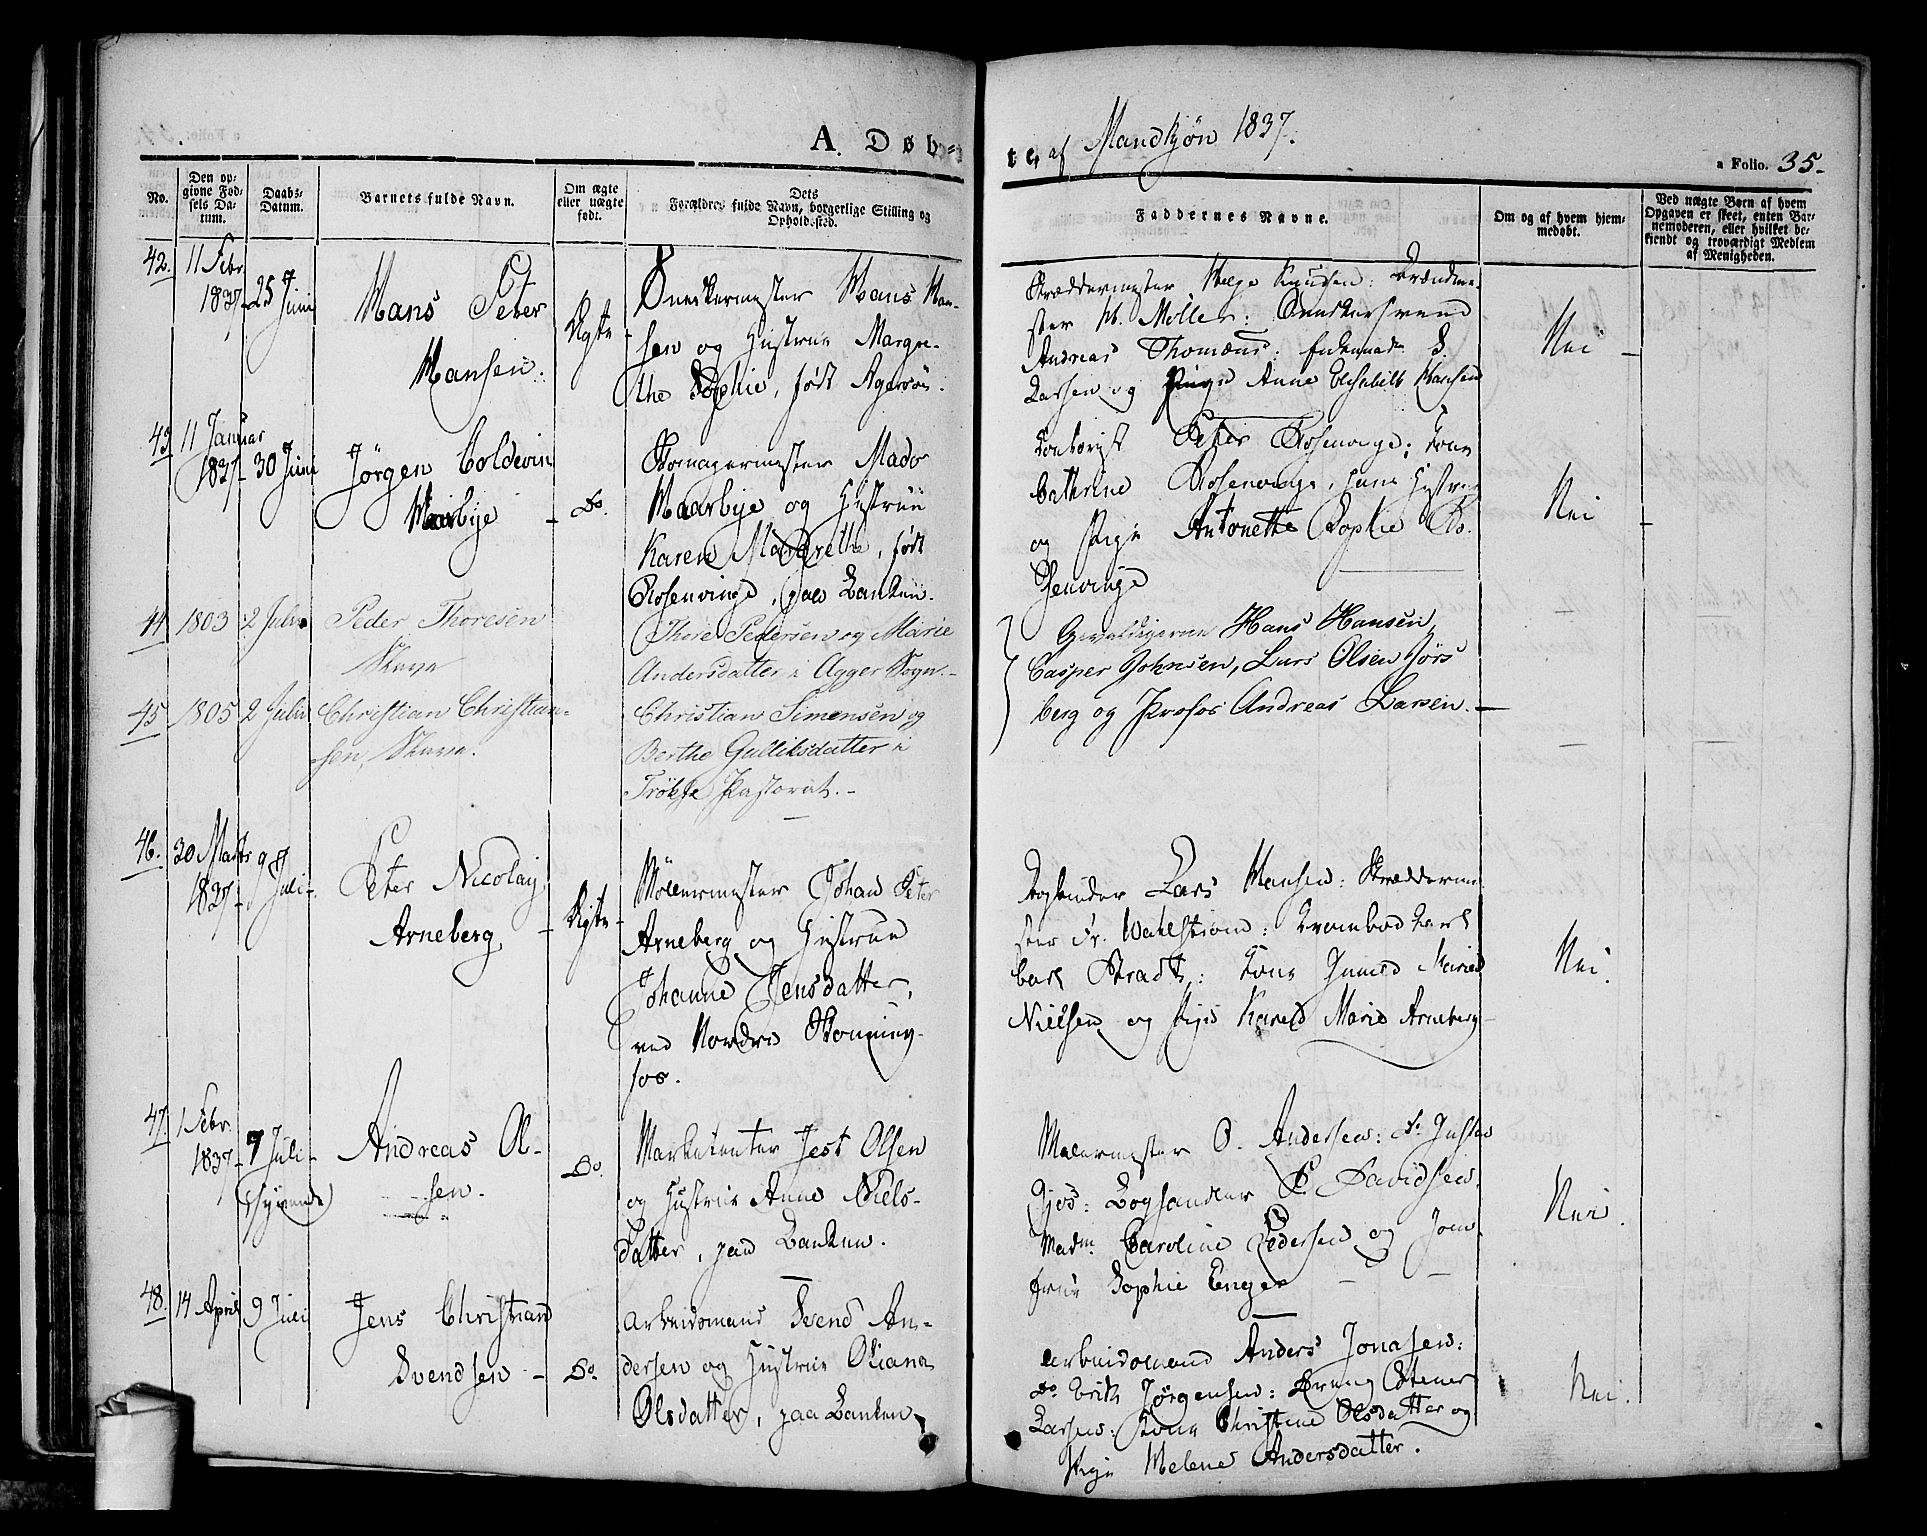 A. Døb-
te, af Mandkjøn 1837.
a Folio. 35.
No.
Den op-
givne Fød-
sels Da-
tum.
Daabs-
Datum.
Barnets fulde Navn.
Om ægte
eller uægte
født.
Dets
Forældres fulde Navn, borgerlige Stilling og
Opholdssted.
Faddernes Navne.
Om og af hvem hjem-
medøbt.
Ved uægte Børn af hvem
Opgaven er skeet, enten Bar-
nemoderen, eller hvilket be-
kjendt og troværdigt Medlem
af Menigheden.
42.
11 Febr.
1837
25 Juni
Hans Peter
Hansen.
Ægte
Snedkermester Hans Han-
sen og Hustrue Margre-
the Sophie, født Agersøn.
Skræddermester Helge Knudsen:
ster H. Møller: Snedkersvend
Andreas Thomæus: S.
Larsen og Pige Anne Elisabeth Hansen
Nei
43
11 Januar
1837
30 Juni
Jørgen Coldevin
Maarbye
Do.
Skomagermester Mads
Maarbye og Hustrue
Karen Margrethe, født
Rosenvinge, paa Banken.
Peter Rosenvinge; Kone
Cathrine Rosenvinge, hans Hustrue
og Pige Antonette Sophie Ro-
senvinge
Nei
44
1803
2 Julii
Peder Thoresen
Slave
Thore Pedersen og Marie
Andersdatter i Agger Sogn.
Gevaldigerne Hans Hansen,
Casper Johnsen, Lars Olsen Jørs
berg og Profos Andreas Larsen.
45
1805
2 Julii
Christian Christian-
sen, Slave.
Christian Simensen og
Berthe Gulliksdatter i
Pastorat.
46.
30 Marts
1837
9 Juli
Peter Nicolay
Arneberg
Ægte
Møllermester Johan Peter
Arneberg og Hustrue
Johanne Jensdatter,
ved Nordre
Bogbinder Lars Hansen: Skrædderme-
ster Fr. Wahlstrøm:
Carl Stradt: Kone Marie
Nielsen og Pige Karen Marie Arneberg
Nei.
47.
1 Febr.
1837
7 Juli
(syvende)
Andreas Ol-
sen.
Do.
Marketenter Jest Olsen
og Hustrue Anne Niels-
datter, paa Banken.
Malermester O. Andersen: Do. Gustav
Gjøs: Boghandler P. Davidsen.
Madm. Caroline Pedersen og Jom-
frue Sophie Enger
Nei.
48.
14 April
9 Juli
Jens Christian
Svendsen
Do.
Arbeidsmand Svend An-
dersen og Hustrue Oliana
Olsdatter, paa Banken.
Arbeidsmand Anders Jonasen:
Do. Erik Jørgensen: Dreng
Larsen: Kone Christine Olsdatter og
Pige Helene Andersdatter.
Nei.